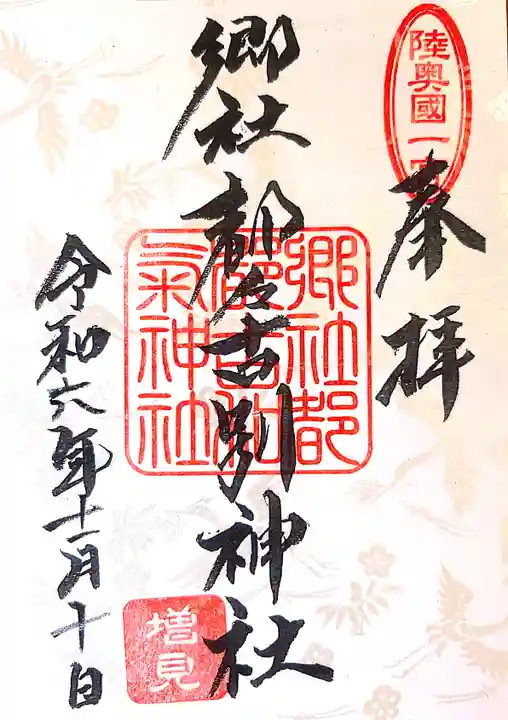 陸奥國一宮
奉拝
郷社都々古別神社
郷社都
古和
氣神社
令和六年十一月十日
増見